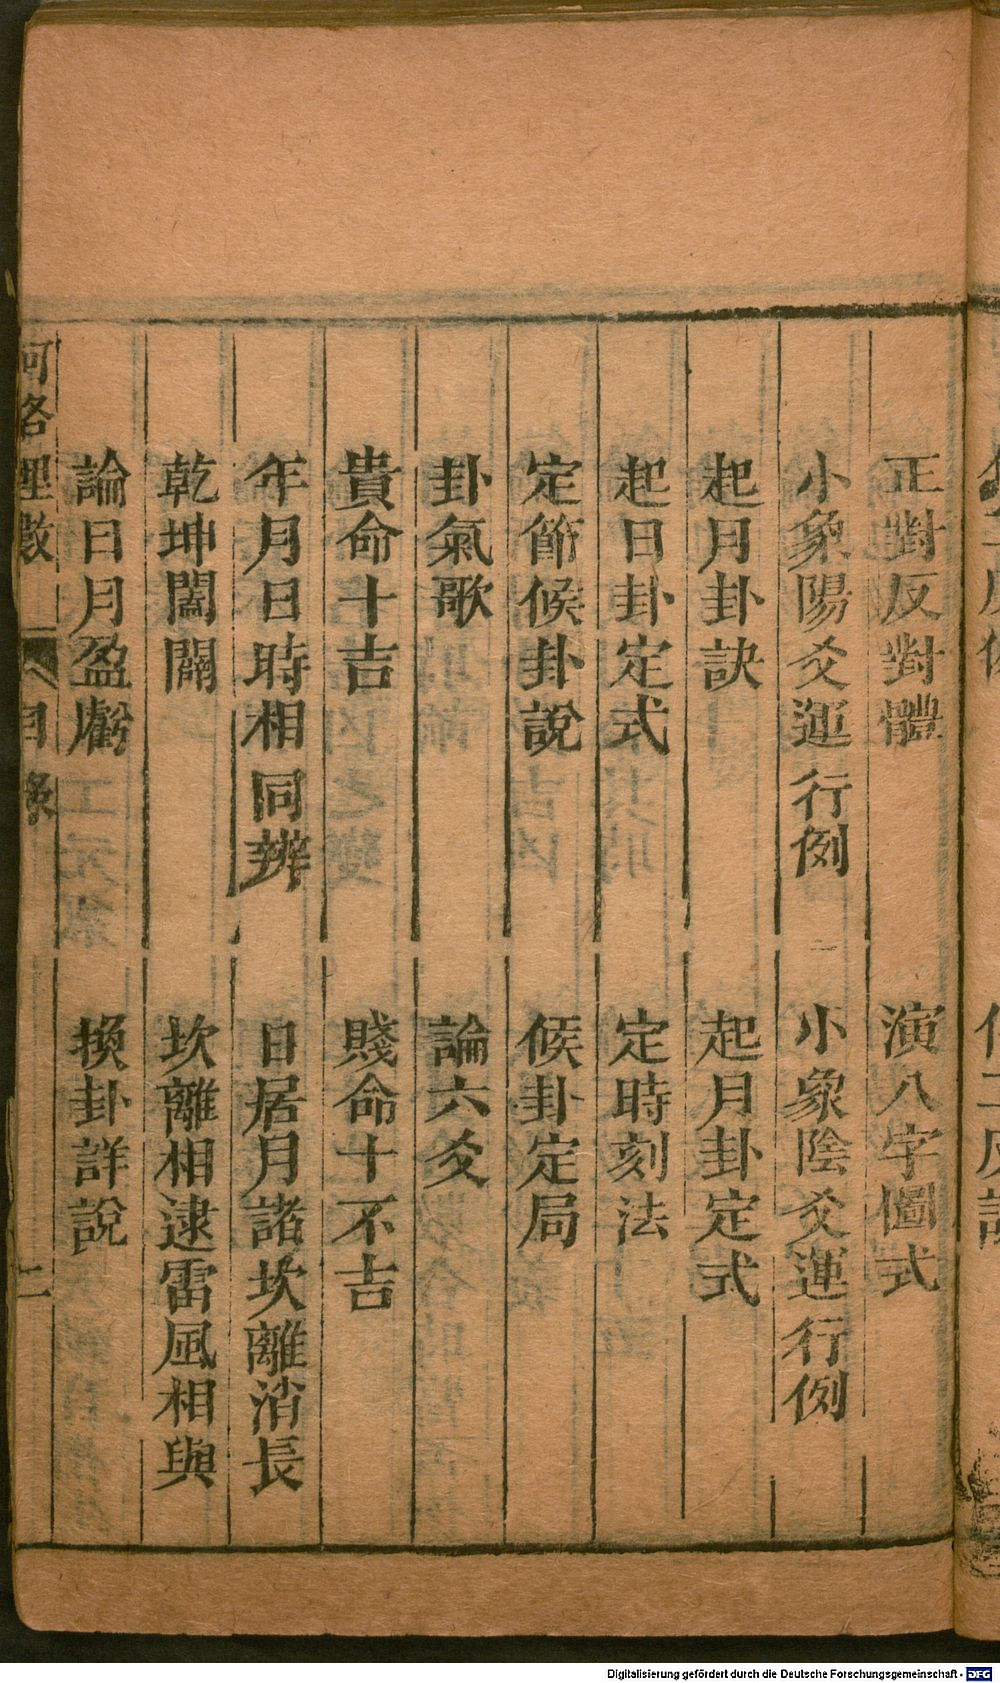 正對反對體　演八字圖式
小象陽爻運行例　小象陰爻運行例
起月卦訣　起月卦定式
起日卦定式　定時刻法
定節候卦說　候卦定局
卦氣歌　論六爻
貴命十吉　賤命十不吉
年月日時相同辨　日居月諸坎離消長
乾坤闔闢　坎離相逮雷風相與
論日月盈虧　換卦詳說
河洛理數　目錄　二
Digitalisierung gefördert durch die Deutsche Forschungsgemeinschaft - DFG